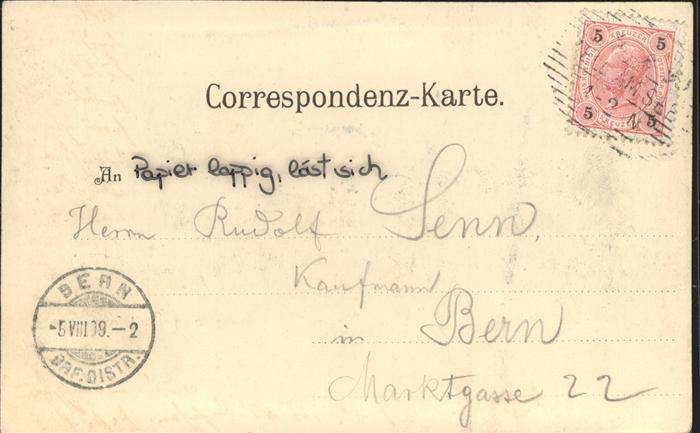 Correspondenz-Karte.
5 KREUZER 5
5 5
An Papier lappig, löst sich
Herrn Rudolf Senn,
Kaufmann
in Bern
Marktgasse 22
BERN
-5 VIII 99.-2
BRF. DISTR.